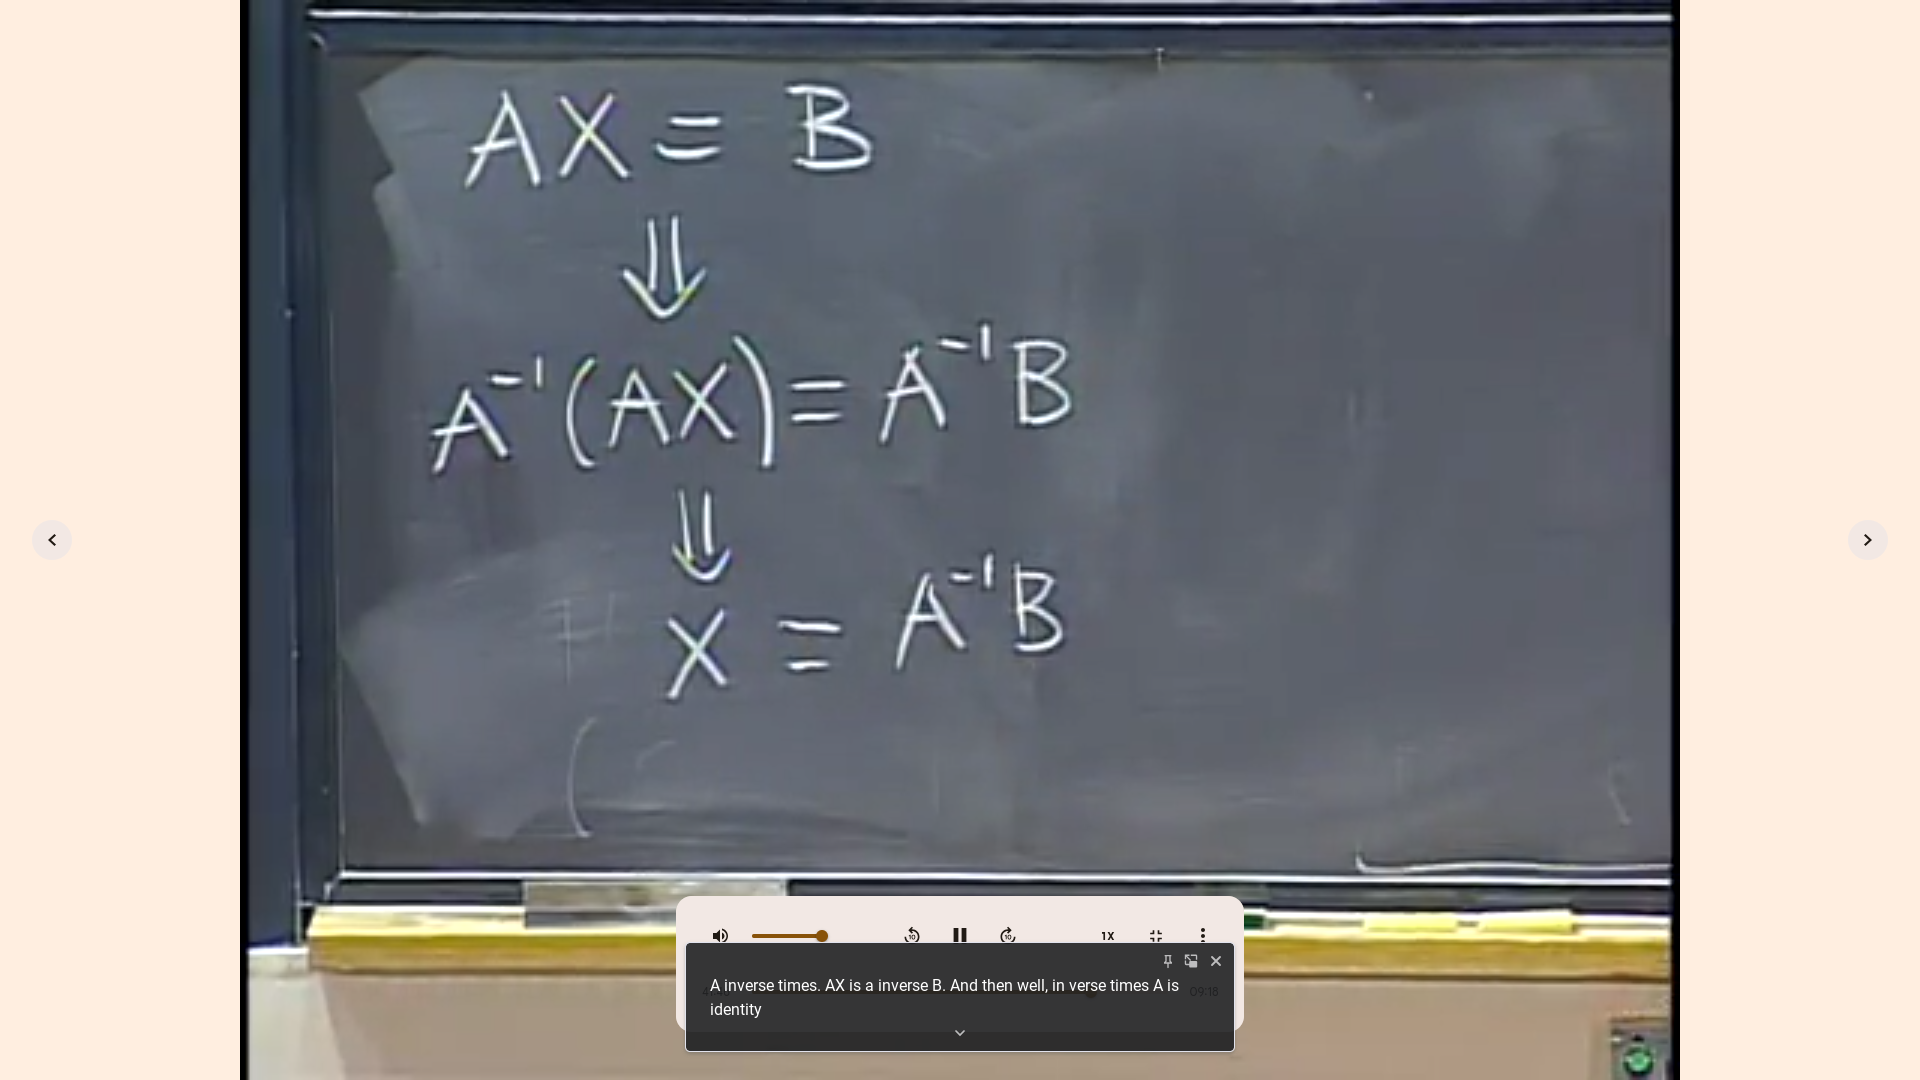 AX = B
⇓
A⁻¹(AX) = A⁻¹B
⇓
X = A⁻¹B
1X
A inverse times. AX is a inverse B. And then well, in verse times A is
identity
09:18